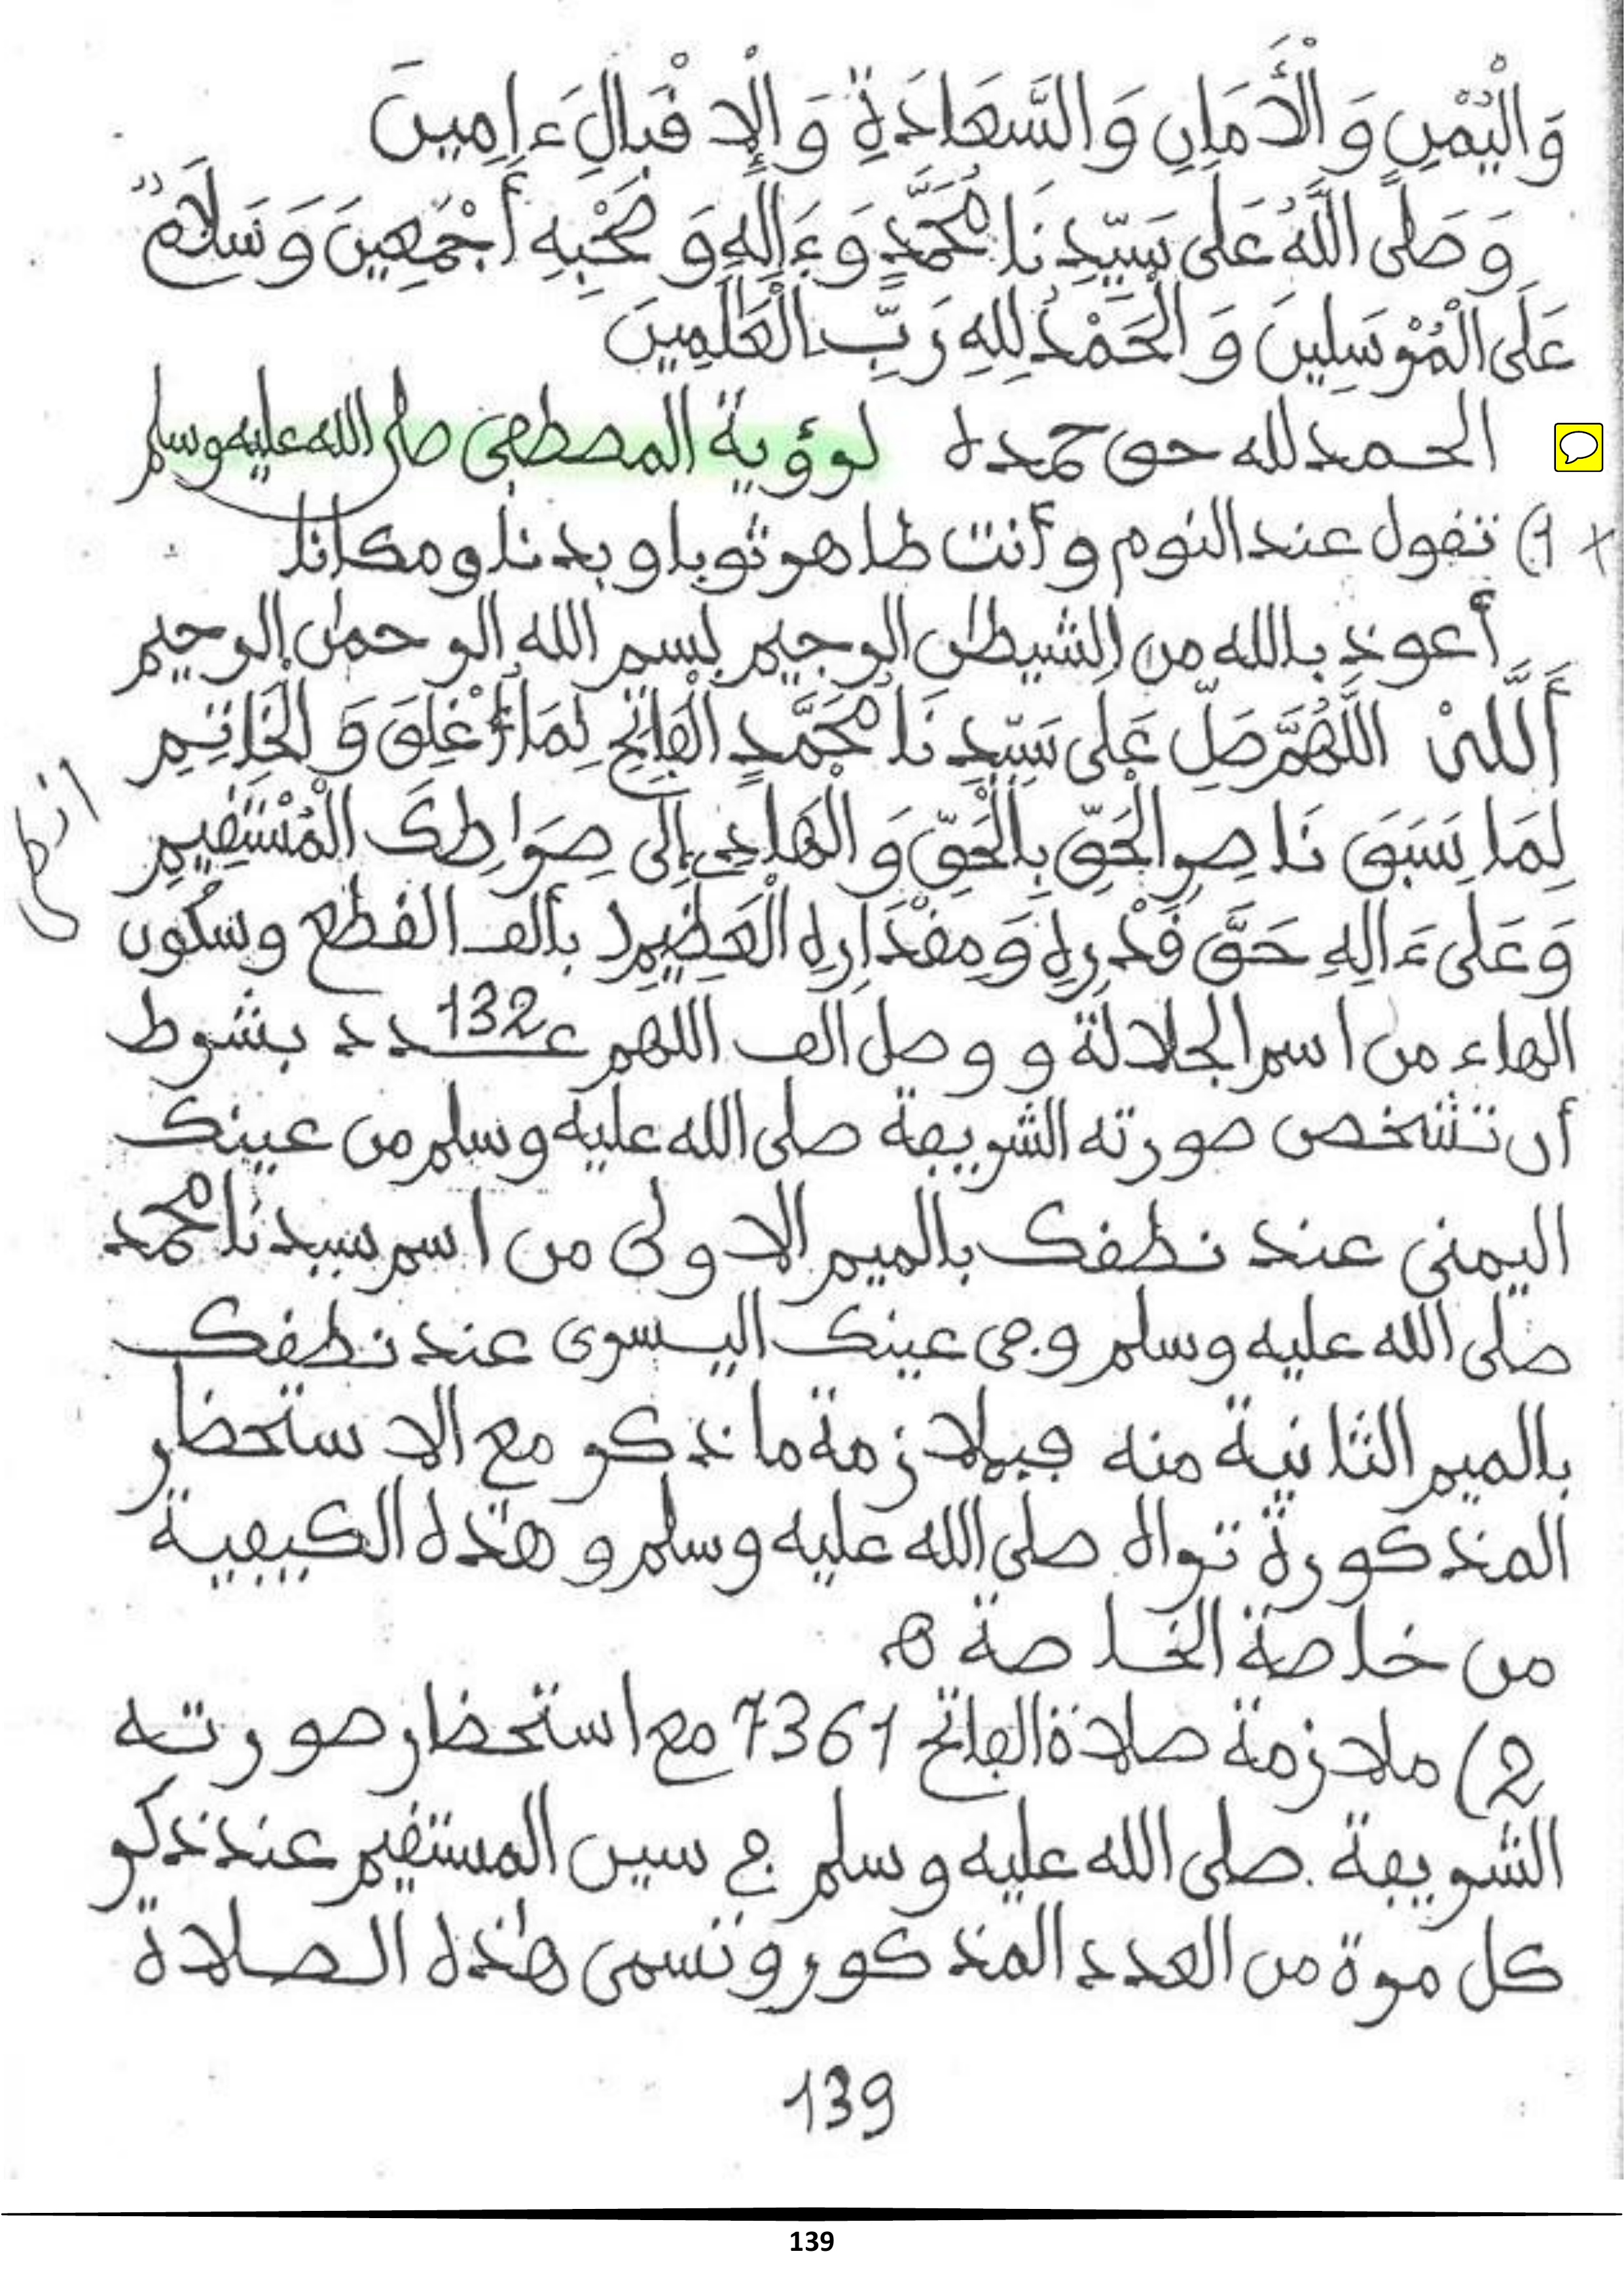 وَالْيُمْنِ وَالْأَمَانِ وَالسَّعَادَةِ وَالْإِقْبَالِ ءَامِينَ
وَصَلَّى اللَّهُ عَلَى سَيِّدِنَا مُحَمَّدٍ وَءَالِهِ وَصَحْبِهِ أَجْمَعِينَ وَسَلَامٌ
عَلَى الْمُرْسَلِينَ وَالْحَمْدُ لِلهِ رَبِّ الْعَالَمِينَ
الحمد لله حق حمده لرؤية المصطفى صلى الله عليه وسلم
1) تقول عند النوم وأنت طاهر ثوبا وبدنا ومكانا
أعوذ بالله من الشيطن الرجيم بسم الله الرحمن الرحيم
أَللهْ اللَّهُمَّ صَلِّ عَلَى سَيِّدِنَا مُحَمَّدٍ الْفَاتِحِ لِمَا أُغْلِقَ وَالْخَاتِمِ
لِمَا سَبَقَ نَاصِرِ الْحَقِّ بِالْحَقِّ وَالْهَادِي إِلَى صِرَاطِكَ الْمُسْتَقِيمِ
وَعَلَى ءَالِهِ حَقَّ قَدْرِهِ وَمِقْدَارِهِ الْعَظِيمِ بألف القطع وسكون
الهاء من اسم الجلالة و وصل الف اللهم عدد 132 بشرط
أن تشخص صورته الشريفة صلى الله عليه وسلم من عينك
اليمنى عند نطقك بالميم الاولى من اسم سيدنا محمد
صلى الله عليه وسلم وفى عينك اليسرى عند نطقك
بالميم الثانية منه فبملازمة ما ذكر مع الاستحضار
المذكورة تراه صلى الله عليه وسلم وهذه الكيفية
من خاصة الخاصة ه
2) ملازمة صلاة الفاتح 7361 مع استحضار صورته
الشريفة صلى الله عليه وسلم في سين المستقيم عند ذكر
كل مرة من العدد المذكور وتسمى هذه الصلاة
139
139